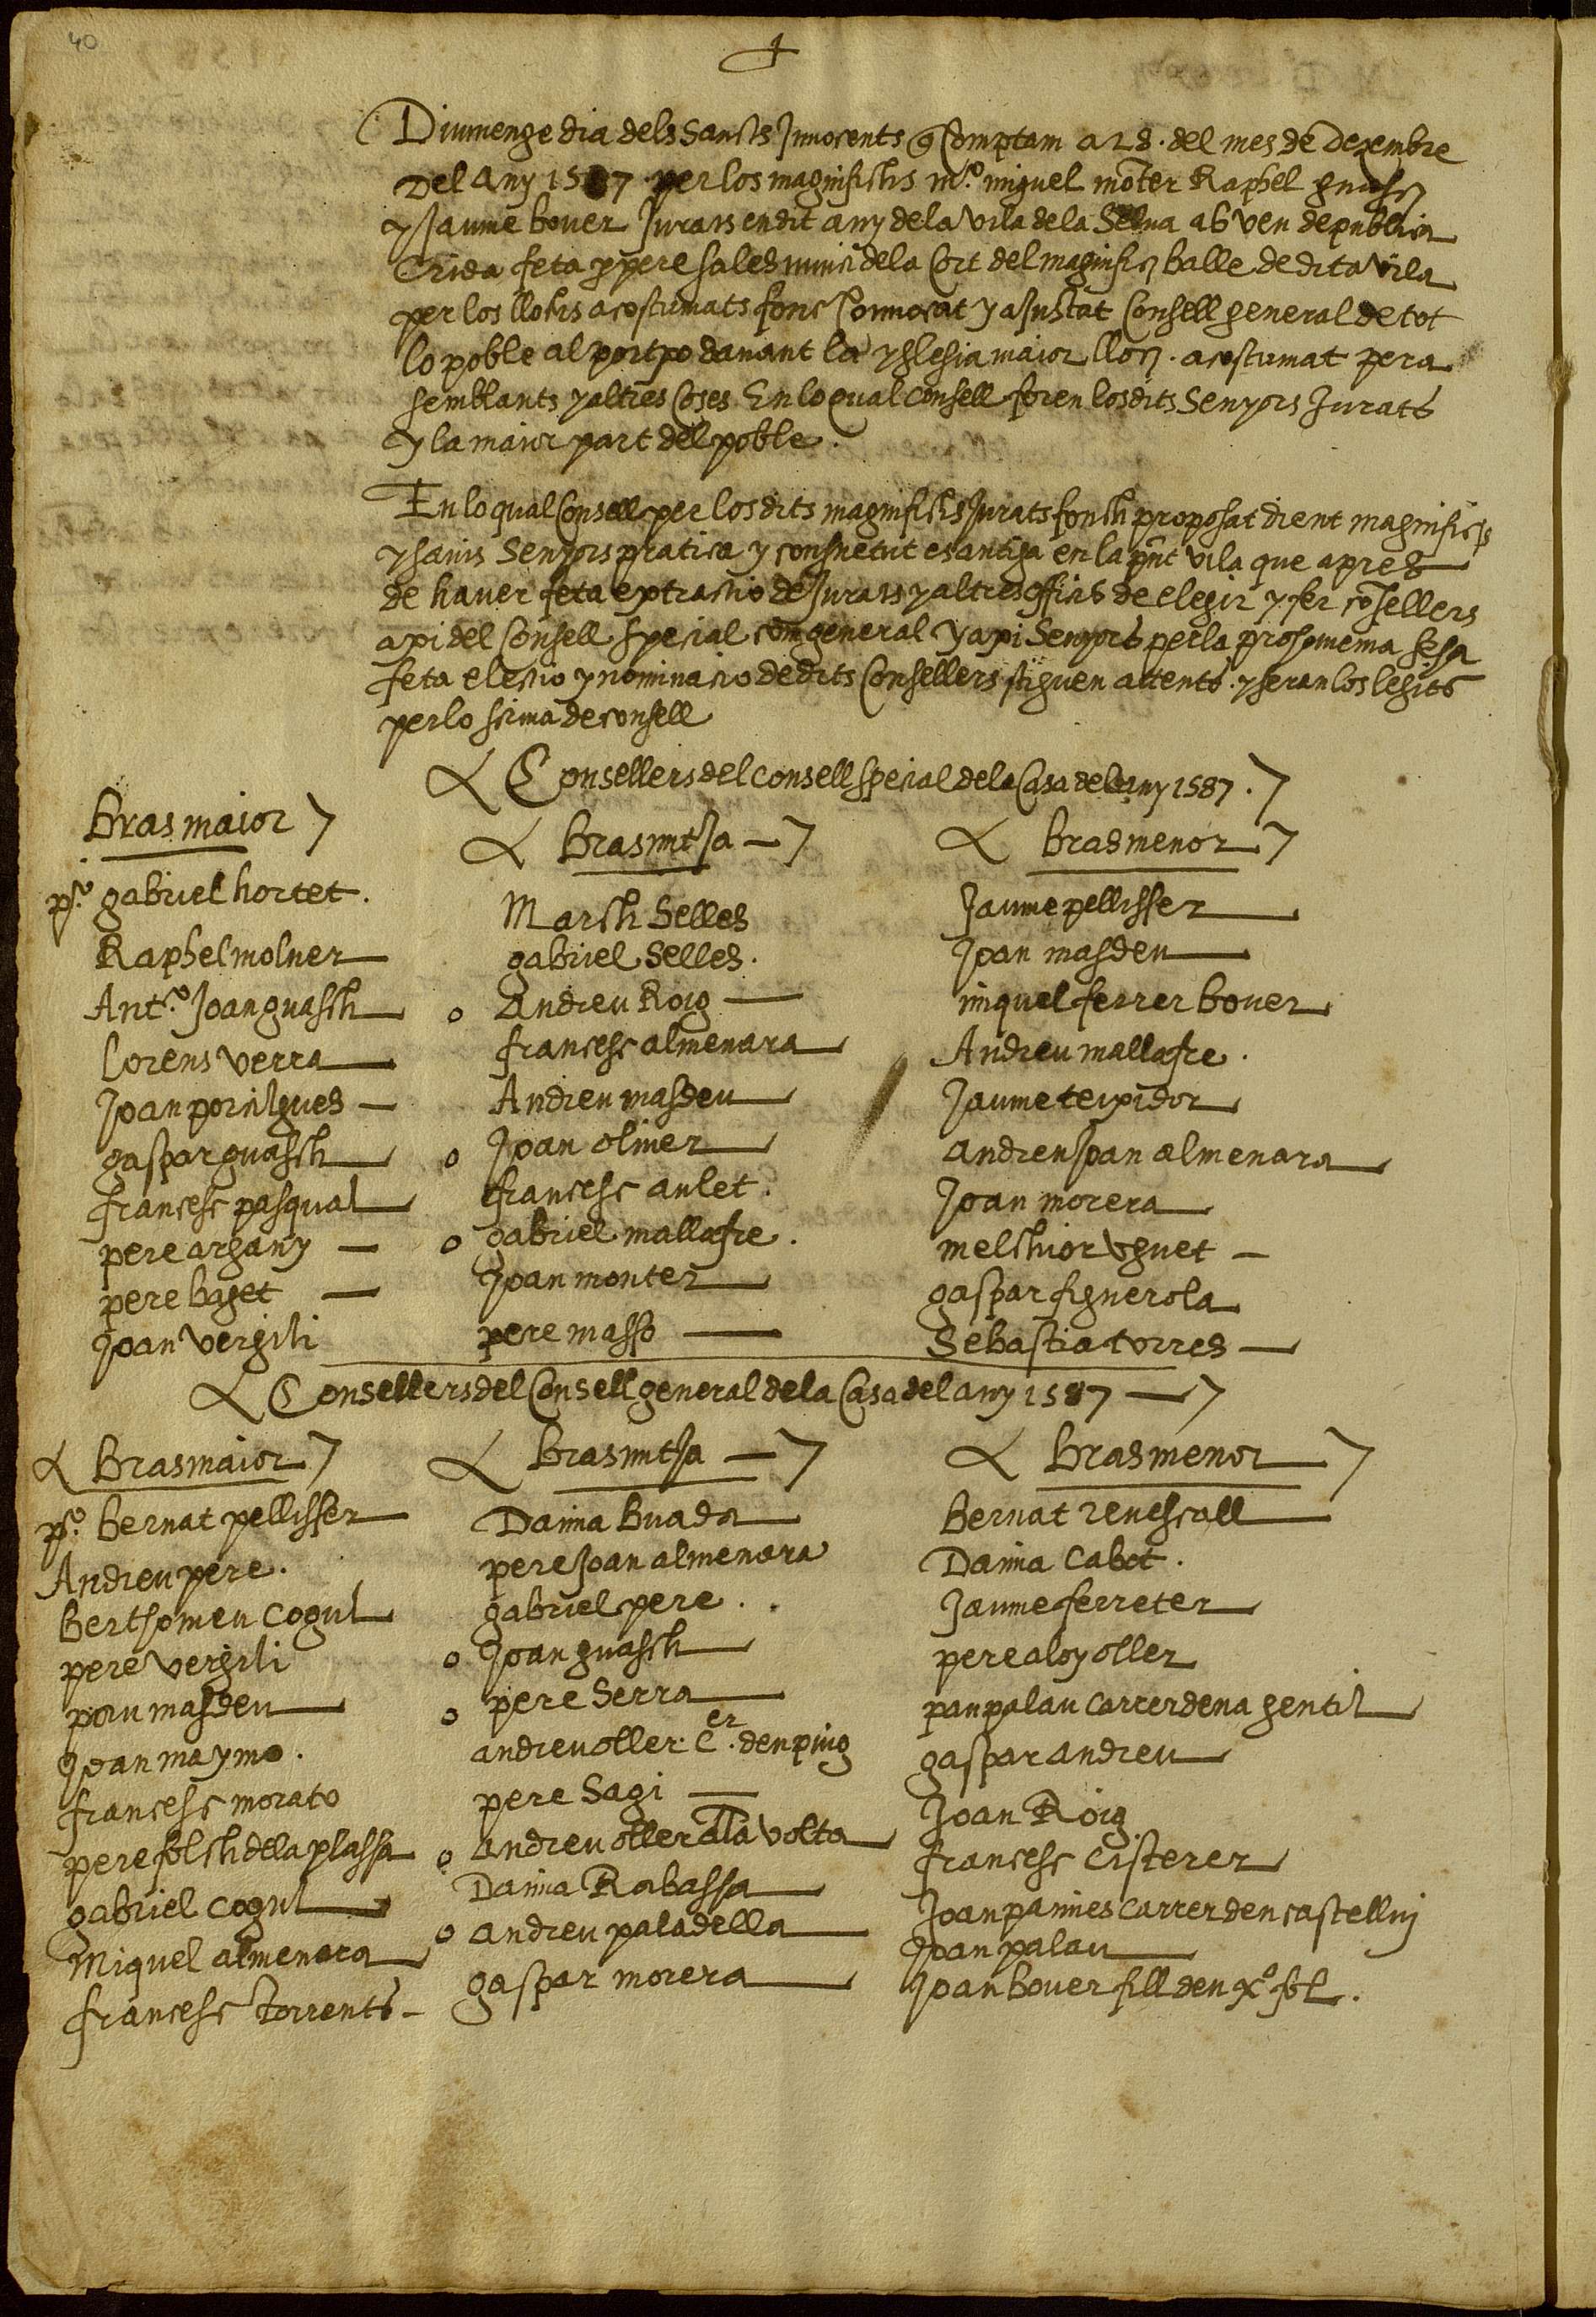 40
Diumenge dia dels Sancts Innocents q̄ Comptam a 28. del mes de Dezembre
Del Any 1587 per los magnifichs m.º miquel mōter Raphel guasch
y Jaume bover Jurats en dit any de la vila de la Selva ab veu de publica
Crida feta p pere sales nunci de la Cort del magnifich balle de dita vila
per los llochs acostumats fonc Convocat y ajustat Consell general de tot
lo poble al portxo davant la yglesia maior lloch. acostumat pera
semblants y altres Coses En lo Qual Consell foren los dits Senyors Jurats
y la maior part del poble.
En lo qual Consell per los dits magnifichs Jurats fonch proposat dient magnifichs
y savis Senyors pratica y consuetut es antiga en la pnt vila que apres
de haver feta extractio de Jurats y altres officis de elegir y fer cōsellers
axi del Consell special com general y axi Senyors per la
feta electio y nominacio de dits Consellers stiguen attents. y seran los legits
per lo scriva de consell
Consellers del Consell special de la Casa del any 1587.
bras maior
bras mitja
bras menor
pº. gabriel hortet.
March Selles
Jaume pellisser
Raphel molner
gabriel Selles.
Joan masdeu
Ant.º Joan guasch
o Andreu Roig
miquel ferrer bover
Lorens verra
francesc almenara
Andreu mallafre.
Joan porcilgues
Andreu masdeu
Jaume teixidor
gaspar guasch
o Joan oliver
andreu Joan almenara
francesc pasqual
francesc aulet.
Joan morera
pere argany
o gabriel mallafre.
melchior uguet
pere baget
Joan monter
gaspar figuerola
Joan vergili
pere masso
Sebastia torres
Consellers del Consell general de la Casa del any 1587
bras maior
bras mitja
bras menor
pº. bernat pellisser
Damia buada
bernat renescall
Andreu pere.
pere Joan almenara
Damia Cabot.
bertholomeu Cogul
gabriel pere.
Jaume ferreter
pere vergili
o Joan guasch
pere aloy oller
pau masdeu
o pere Serra
pau palau carrer de na gentil
Joan maymo.
andreu oller. C.er den puig
gaspar andreu
francesc morato
pere Sagi
Joan Roig
pere folch dela plassa
o andreu oller a la volta
francesc cisterer
gabriel cogul
Damia Rabassa
Joan pamies carrer den castellvi
Miquel almenara
o andreu paladella
Joan palau
francesc torrents
gaspar morera
Joan bover fill den xº. fol.